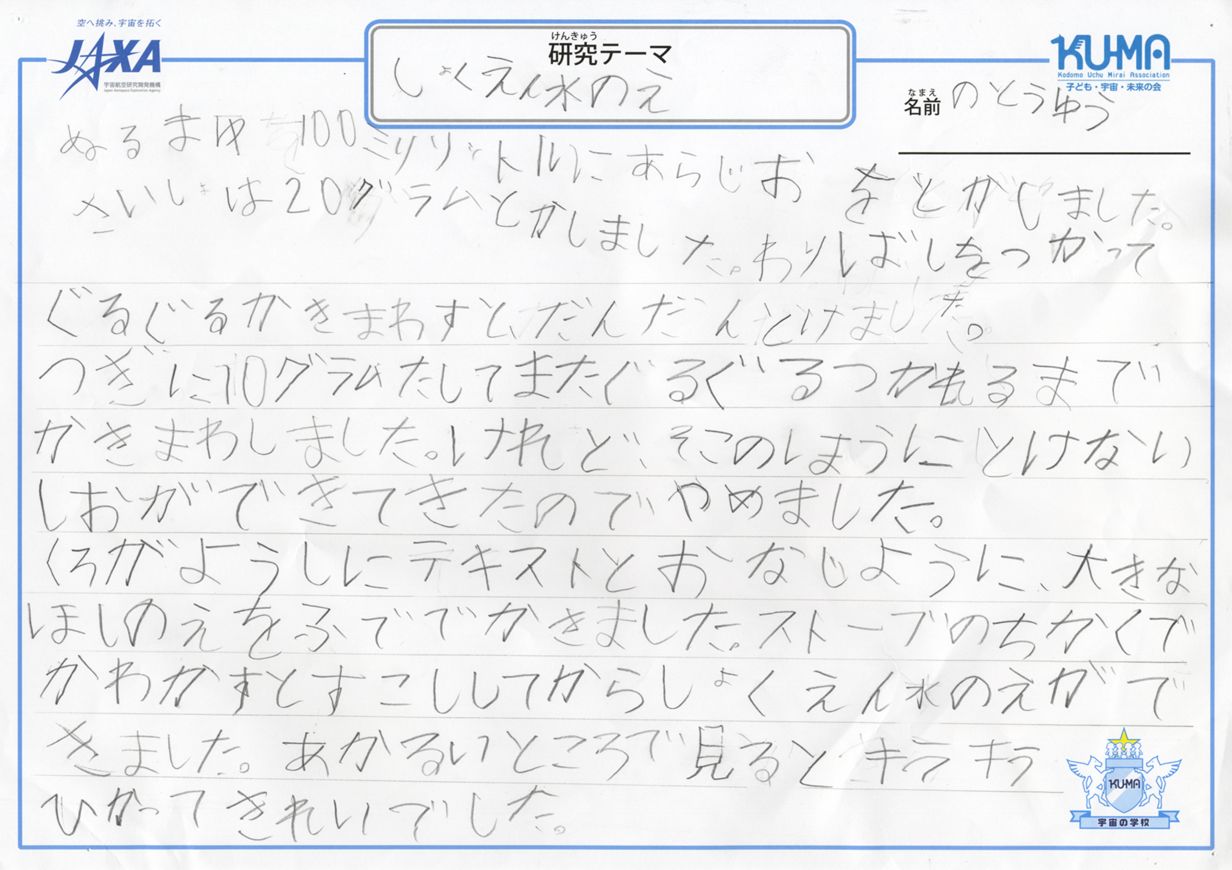 空へ挑み、宇宙を拓く
JAXA
宇宙航空研究開発機構
Japan Aerospace Exploration Agency
けんきゅう
研究テーマ
しょくえん水のえ
KU-MA
Kodomo Uchu Mirai Association
子ども・宇宙・未来の会
なまえ
名前 のとうゆう
ぬるまゆ100ミリリットルにあらじおをとかしました。
さいしょは20グラムとかしました。わりばしをつかって
ぐるぐるかきまわすと、だんだんとけました。
つぎに10グラムたしてまたぐるぐるつかれるまで
かきまわしました。けれど、そこのしように とけない
しおがでてきたのでやめました。
くろがようしにテキストとおなじように、大きな
ほしのえをふででかきました。ストーブのちかくで
かわかすとすこししてからしょくえん水のえがで
きました。あかるいところで見るとキラキラ
ひかってきれいでした。
KU-MA
宇宙の学校